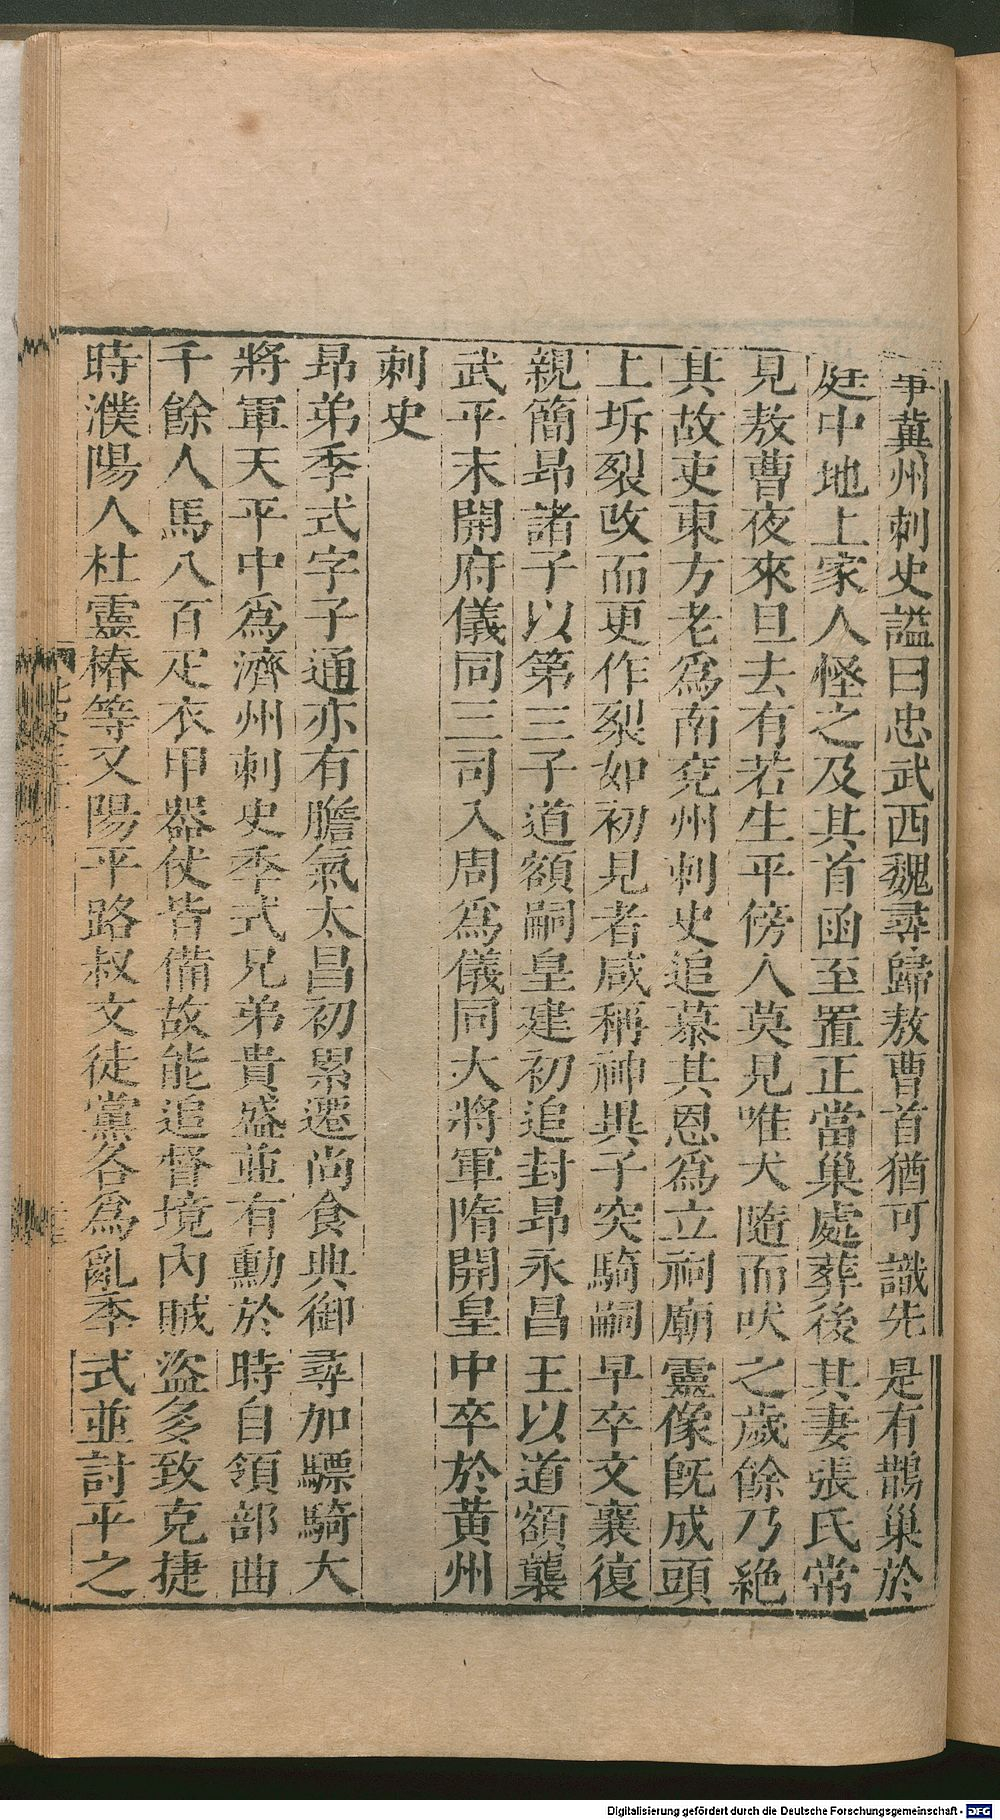 事冀州刺史謚曰忠武西魏尋歸敖曹首猶可識先是有鵲巢於
庭中地上家人怪之及其首函至置正當巢處葬後其妻張氏常
見敖曹夜來旦去有若生平傍人莫見唯犬隨而吠之歲餘乃絶
其故吏東方老爲南兖州刺史追慕其恩爲立祠廟靈像旣成頭
上坼裂改而更作裂如初見者咸稱神異子突騎嗣早卒文襄復
親簡昻諸子以第三子道額嗣皇建初追封昻永昌王以道額襲
武平末開府儀同三司入周爲儀同大將軍隋開皇中卒於黄州
刺史
昻弟季式字子通亦有膽氣太昌初累遷尚食典御尋加驃騎大
將軍天平中爲濟州刺史季式兄弟貴盛並有勳於時自領部曲
千餘人馬八百疋衣甲器仗皆備故能追督境內賊盜多致克捷
時濮陽人杜靈椿等又陽平路叔文徒黨各爲亂季式並討平之
Digitalisierung gefördert durch die Deutsche Forschungsgemeinschaft - DFG